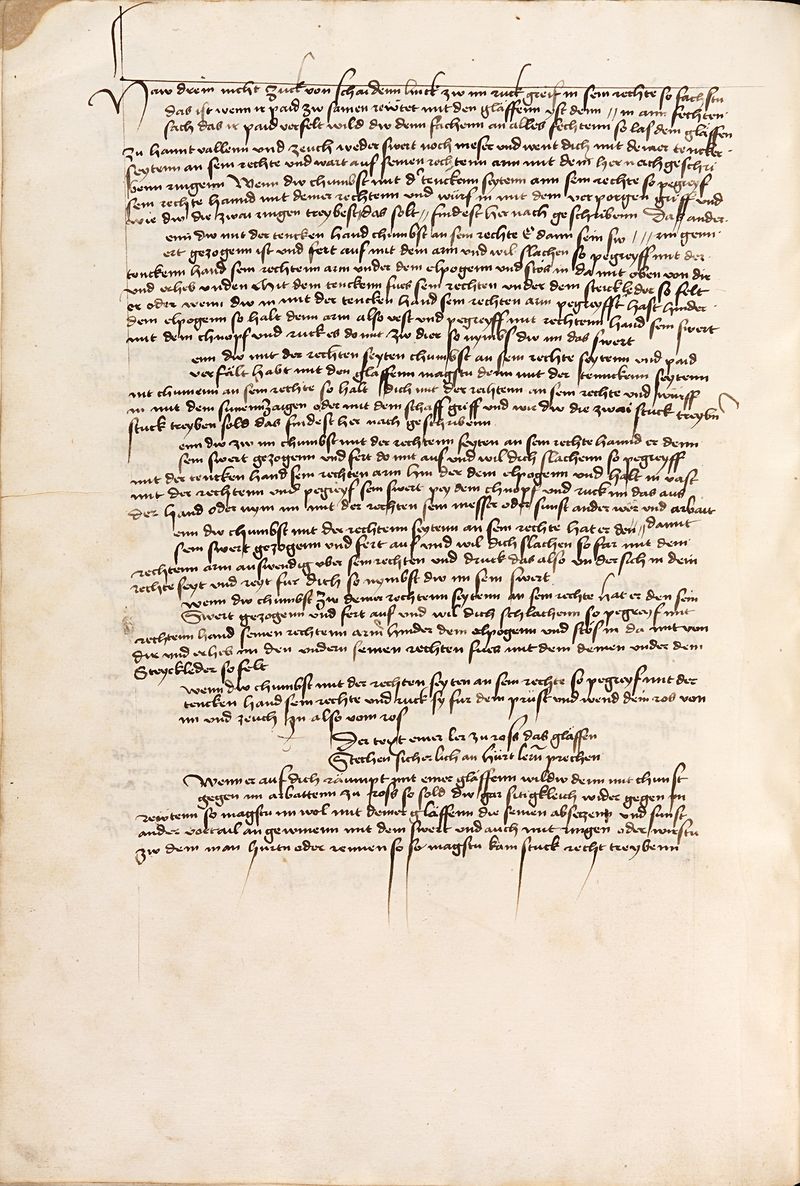 Haw drein nicht zuck von schaidenn linck zw im ruck greif in sein rechte so fach stu
das ist wenn ir paid zw samen rewtet mit den glåffenn Ist denn // in am fechten
sach das ir paid verfelt wild dw denn fachenn an alles fechtenn so las dein glåffen
zu hannt vallenn und zeuch weder swert noch messer und went dich mit deiner tencken
seytenn an sein rechte und wart auf seinen rechtenn arm mit dem her nach geschri
benn ringenn Wenn dw chumbst mit der tenckenn seytenn ann sein rechte so pegreyf
sein rechte hannd mit deiner rechtenn und würf in mit dem verporgen griff und
wie dw die zwai ringen treybest das solt // findest her nach geschribenn Das ander
enn dw mit der tencken hand chumbst an sein rechte Er dann sein sw /// im genn
ert gezogenn ist und fert auf mit dem arm und wil slachen so pegreyff mit der
tenckenn hand sein rechtenn arm under dem elpogenn und stos in da mit oben von dir
und erheb unden mit dem tenckenn fues sein rechten under dem steickleder so felt
er oder wenn dw im mit der tencken hand sein rechten arm pegreyfft hast hinder
dem elpogenn so halt denn arm also vest und pegreyff mit rechtenn hand sein swert
mit dem chnopf und ruck es do mit zw dier so nymbs dw im das swert
enn dw mit der rechten seyten chumbst an sein rechte seytenn und paid
verfålt habt mit den glåffenn magstu denn mit der tennckenn seytenn
nit chumenn an sein rechte so halt dich mit der rechtenn an sein rechte und würff
in mit dem sunnenzaigen oder mit dem schaff griff und wie dw die zwai stuck treybn
stuck treyben sold das findest her nach geschribenn
enn dw zw im chumbst mit der rechtenn seyten an sein rechte hannd er denn
sein swert gezogenn und fert do mit auf und wil dich slachenn so pegreyff
mit der tencken hand sein rechten arm hin der dem elpogenn und halt in vast
mit der rechtenn und pegreyf sein swert pey dem chnopf und ruck im das aus
der hand oder nym im mit der rechten sein messer oder sunst ander wer und arbait
enn dw chumbst mit der rechtenn seytenn an sein rechte hat er den // damit
sein swert gezogenn und fert auf und wil dich slachen so far mit dem
rechtenn arm auswendig uber sein rechten und druck das also under sich in dein
rechte seyt und reyt fur dich so nymbst dw im sein swert
Wenn dw chumbst zw deiner rechtenn seytenn an sein rechte hat er den sein
Swert gezogenn und fert auf und wil dich schlachenn so pegreyf mit
rechtenn hand seinen rechtenn arm hinder dem elpogenn und stos in da mit von
dir und erheb im den undern seinen rechten fues mit dem deinen under dem
Steyckleder so felt
Wenn dw chumbst mit der rechten seyten an sein rechte so pegreyf mit der
tencken hand sein rechte und ruck sy fur dem prust und wend dein ros von
im und zeuch in also vom ros
Der text einer ler zu ross das glåffen
Stechen sicherlich an hurt lern prechen
Wenn er auf dich råumpt mit einer glåffenn wildw denn mit chunst
gegen im arbattenn zu ross so sold dw gar sitigkleich wider gegen im
rewtenn so magstu im wol mit deiner glåffenn die seinen abseczenn und sunst
ander vortail an gewinenn mit dem swert und auch mit ringen oder wirstu
zw dem man hurtn oder rennen so so magstu kain stuck recht treybenn